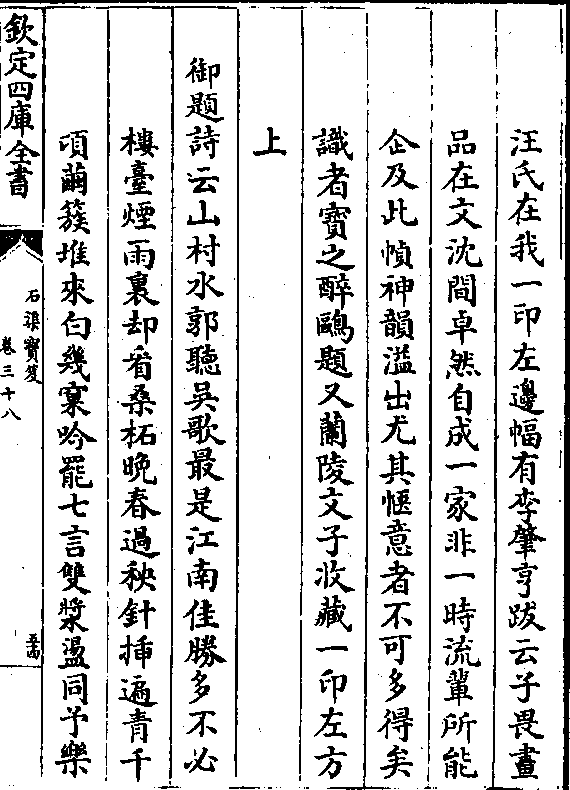 汪氏在我一印左邊幅有李肇亨跋云子畏畫
品在文沈間卓然自成一家非一時流輩所能
企及此幀神韻溢出尤其愜意者不可多得矣
識者寳之醉鷗題又蘭陵文子收藏一印左方
上
御題詩云山村水郭聽吳歌最是江南佳勝多不必
樓臺煙雨裏却看桑柘晩春過秧針揷遍青千
項繭簇堆來白幾窠吟罷七言雙槳盪同予樂
欽定四庫全書
石渠寳笈
卷三十八
五十四